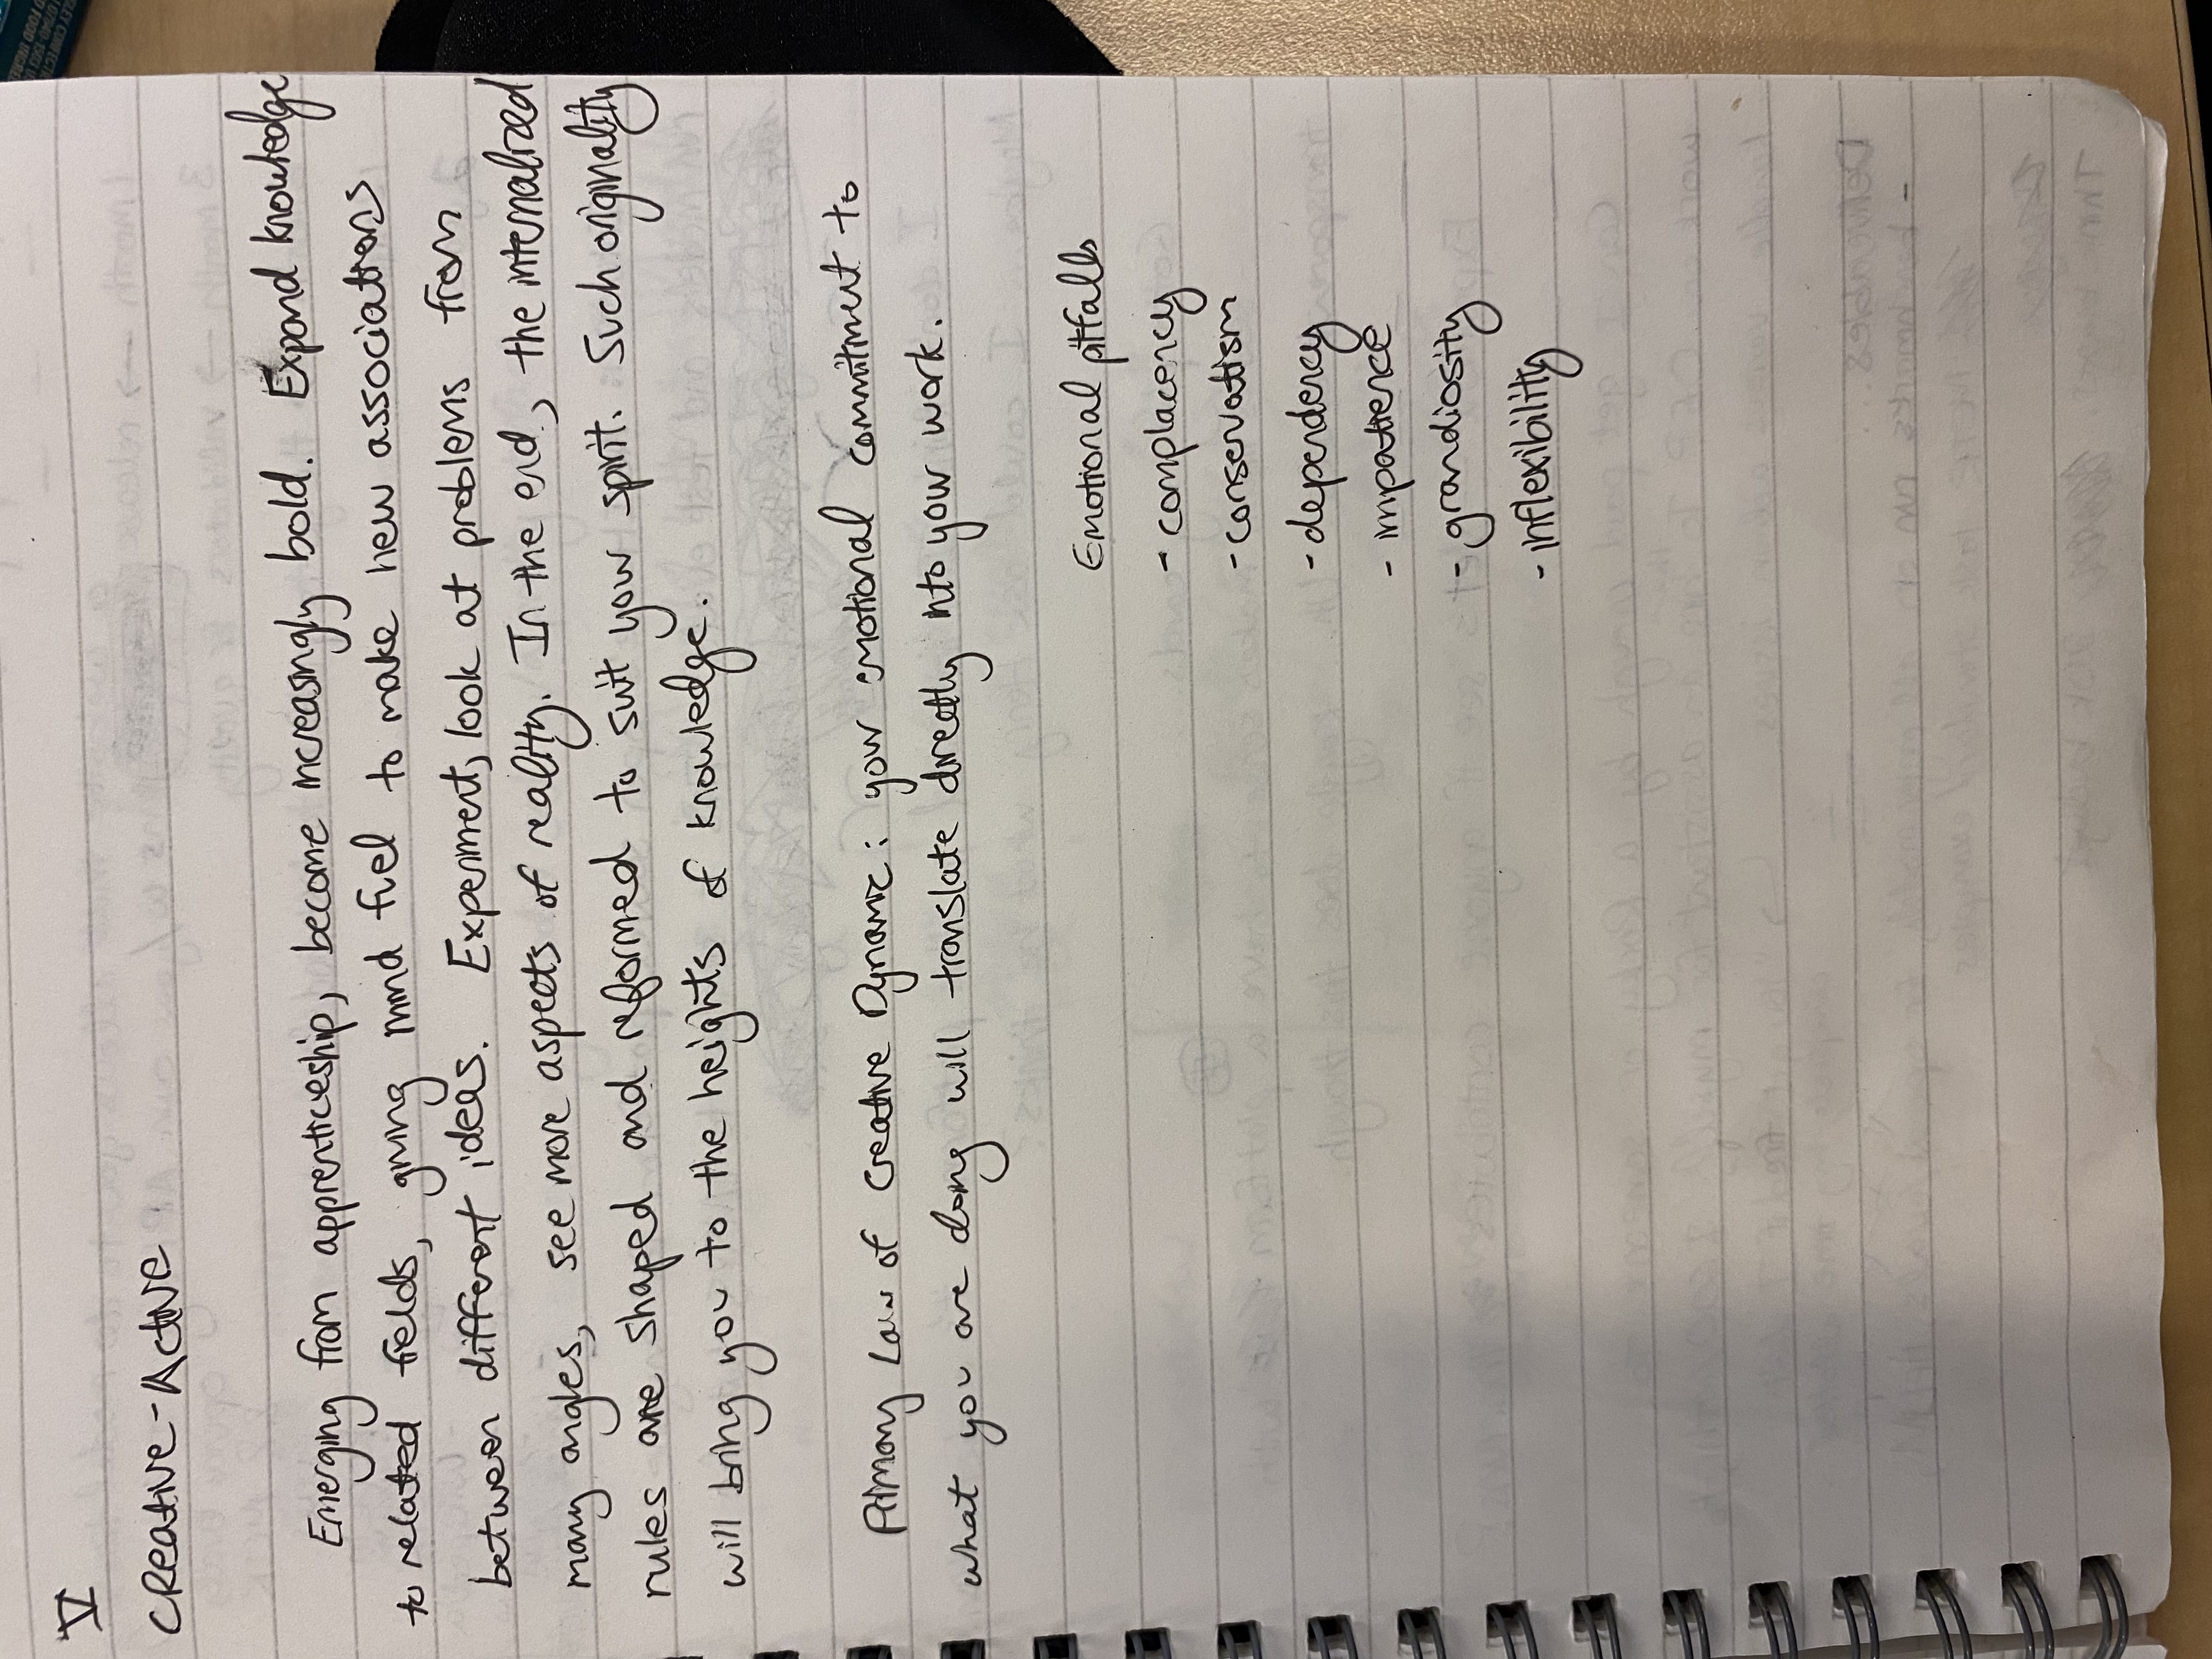 V
Creative-Active
Emerging from apprenticeship, become increasingly bold. Expand knowledge
to related fields, giving mind fuel to make new associations
between different ideas. Experiment, look at problems from
many angles, see more aspects of reality. In the end, the internalized
rules are shaped and reformed to suit your spirit. Such originality
will bring you to the heights of knowledge.
Primary Law of Creative Dynamic: your emotional commitment to
what you are doing will translate directly into your work.
Emotional pitfalls
- complacency
- conservatism
- dependency
- impatience
- grandiosity
- inflexibility